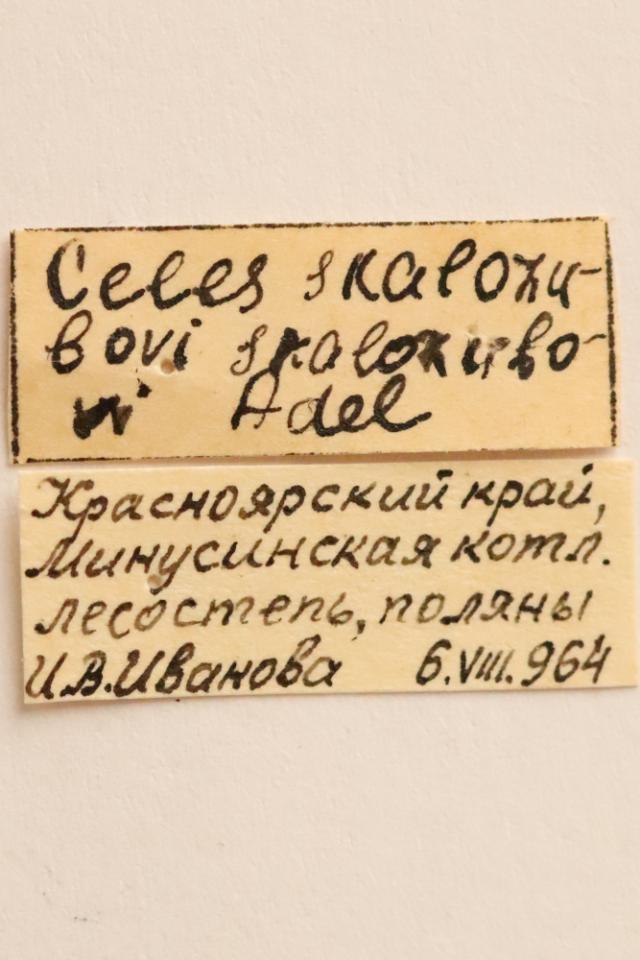 Celes skalozu-
bovi skalozubo-
vi Adel
Красноярский край,
Минусинская котл.
лесостепь, поляны
И.В.Иванова 6.VIII.964